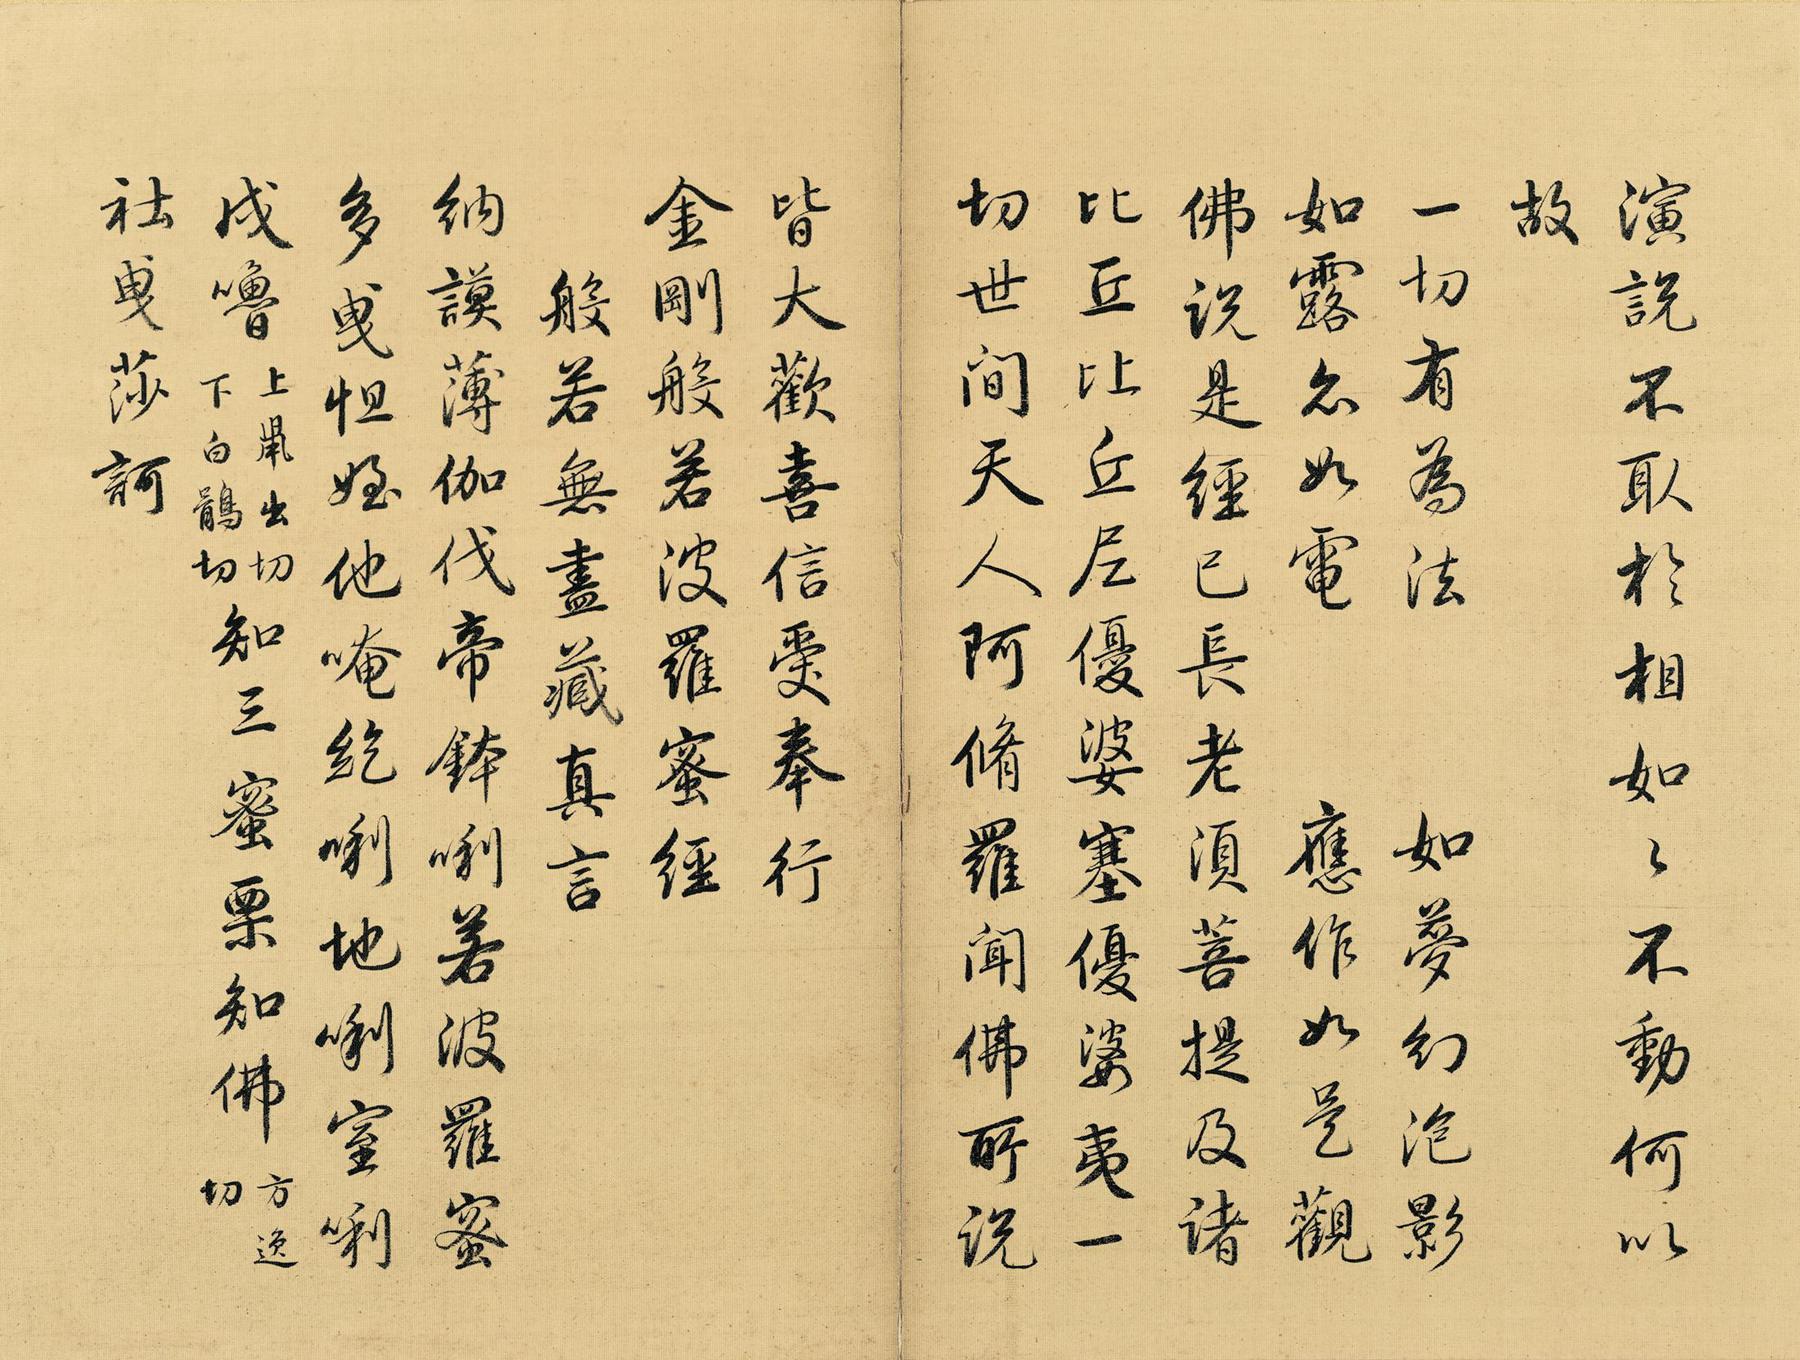 演說不取於相如〻不動何以
故
一切有為法　如夢幻泡影
如露亦如電　應作如是觀
佛說是經已長老須菩提及諸
比丘比丘尼優婆塞優婆夷一
切世間天人阿脩羅聞佛所說
皆大歡喜信受奉行
金剛般若波羅蜜經
般若無盡藏真言
納謨薄伽伐帝鉢唎若波羅蜜
多曳怛姪他唵紇唎地唎室唎
戍嚕
上朙出切
下白鶻切
知三蜜栗知佛
方逸
切
社曳莎訶